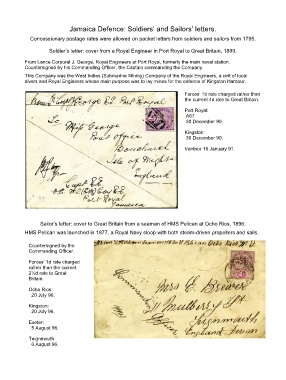 Jamaica Defence: Soldiers' and Sailors' letters.
Concessionary postage rates were allowed on packet letters from soldiers and sailors from 1795.
Soldier's letter: cover from a Royal Engineer in Port Royal to Great Britain, 1890.
From Lance Corporal J. George, Royal Engineers at Port Royal, formerly the main naval station.
Countersigned by his Commanding Officer, the Captain commanding the Company.
This Company was the West Indies (Submarine Mining) Company of the Royal Engineers, a unit of local
divers and Royal Engineers whose main purpose was to lay mines for the defence of Kingston Harbour.
George RE Port Royal
To
Miss George
Post office
Bonchurch
Isle of Wight
England
Capt RE
Port Royal
Jamaica
Forces' 1d rate charged rather than
the current 4d rate to Great Britain.
Port Royal:
A67
30 December 90.
Kingston:
30 December 90.
Ventnor 16 January 91.
Sailor's letter: cover to Great Britain from a seaman of HMS Pelican at Ocho Rios, 1896.
HMS Pelican was launched in 1877, a Royal Navy sloop with both steam-driven propellers and sails.
Countersigned by the
Commanding Officer.
Forces' 1d rate charged
rather than the current
2½d rate to Great
Britain.
Ocho Rios:
20 July 96.
Kingston:
20 July 96.
Exeter:
5 August 96.
Teignmouth:
6 August 96.
Mrs E Brewer
Mulberry St
Teignmouth
England Devon